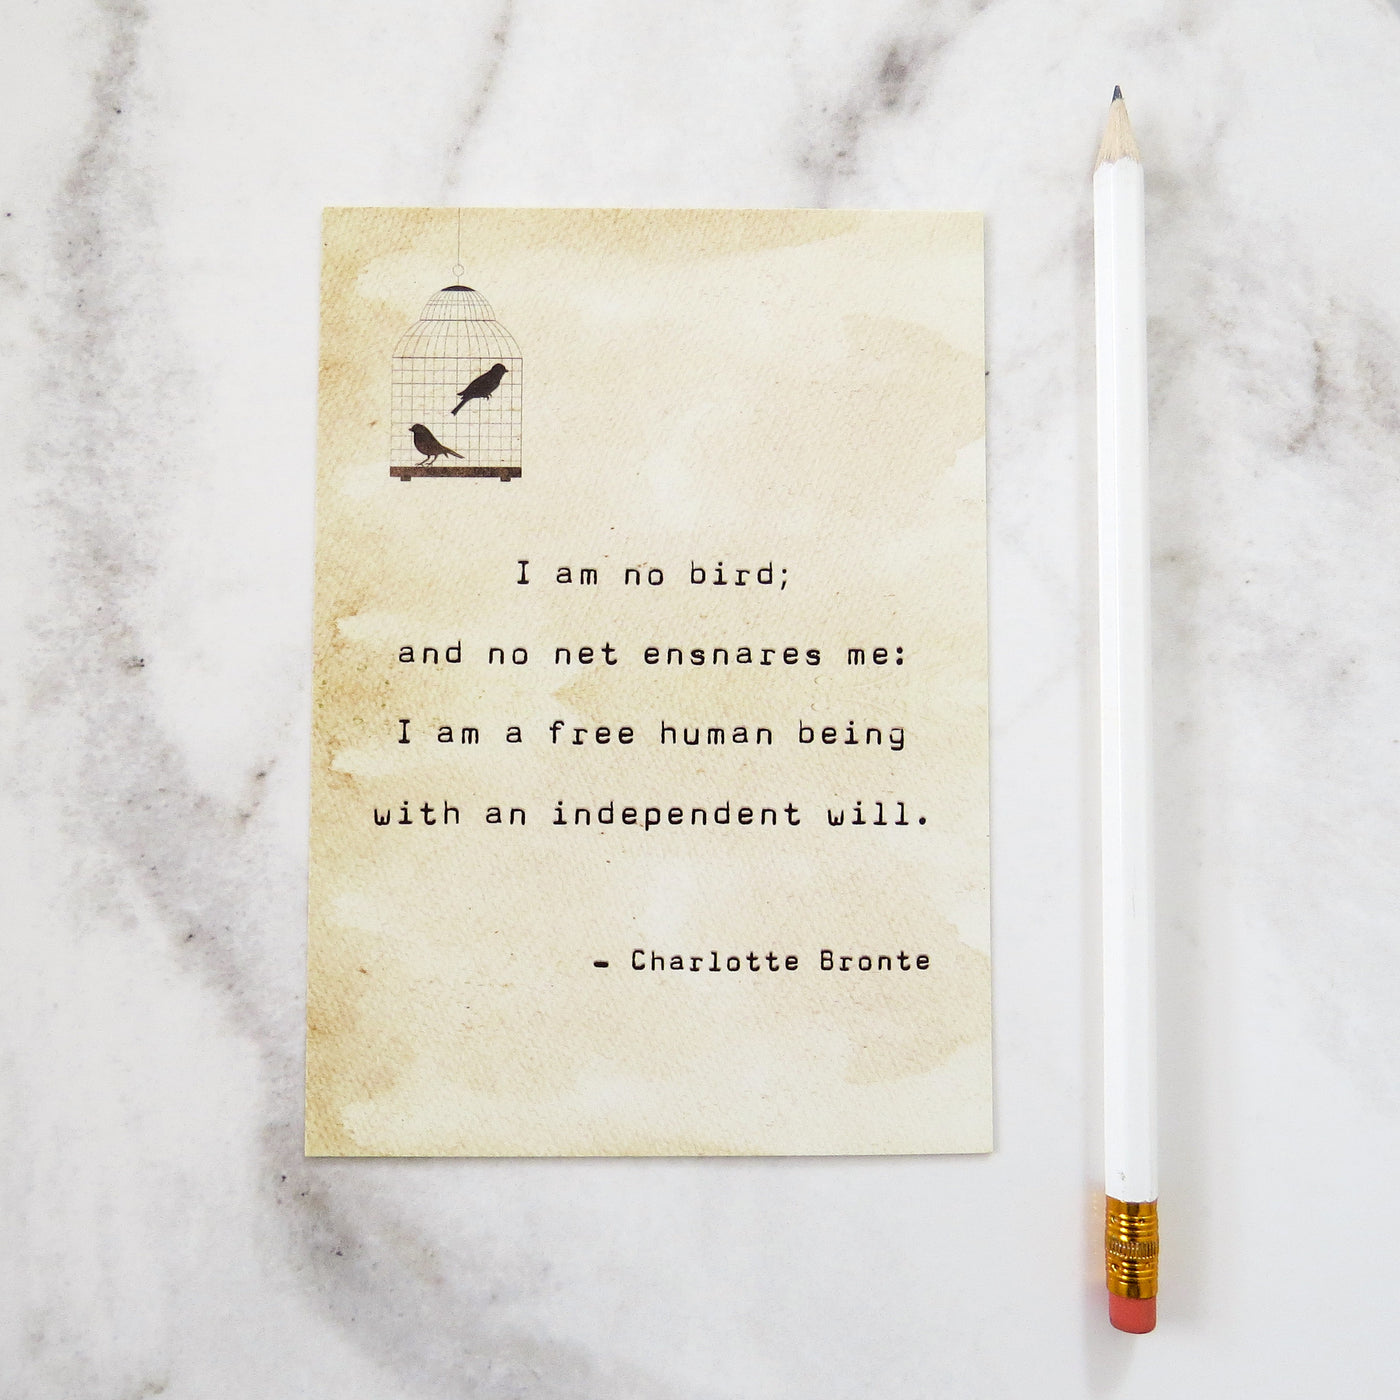 I am no bird;
and no net ensnares me:
I am a free human being
with an independent will.
- Charlotte Bronte